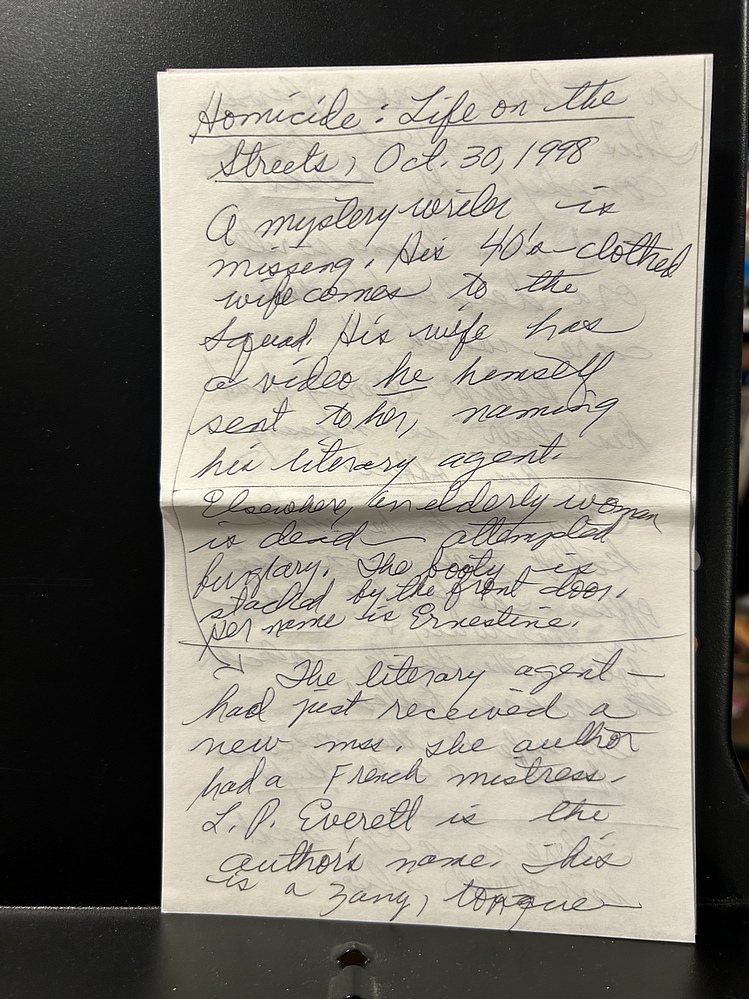 Homicide: Life on the
Streets, Oct. 30, 1998
A mystery writer is
missing. His 40's-clothed
wife comes to the
squad. His wife has
a video he himself
sent to her, naming
his literary agent.
Elsewhere, an elderly woman
is dead — attempted
burglary. The booty is
stacked by the front door.
Her name is Ernestine.
The literary agent —
had just received a
new mss. The author
had a French mistress.
L. P. Everett is the
author's name. This
is a zany, tongue-